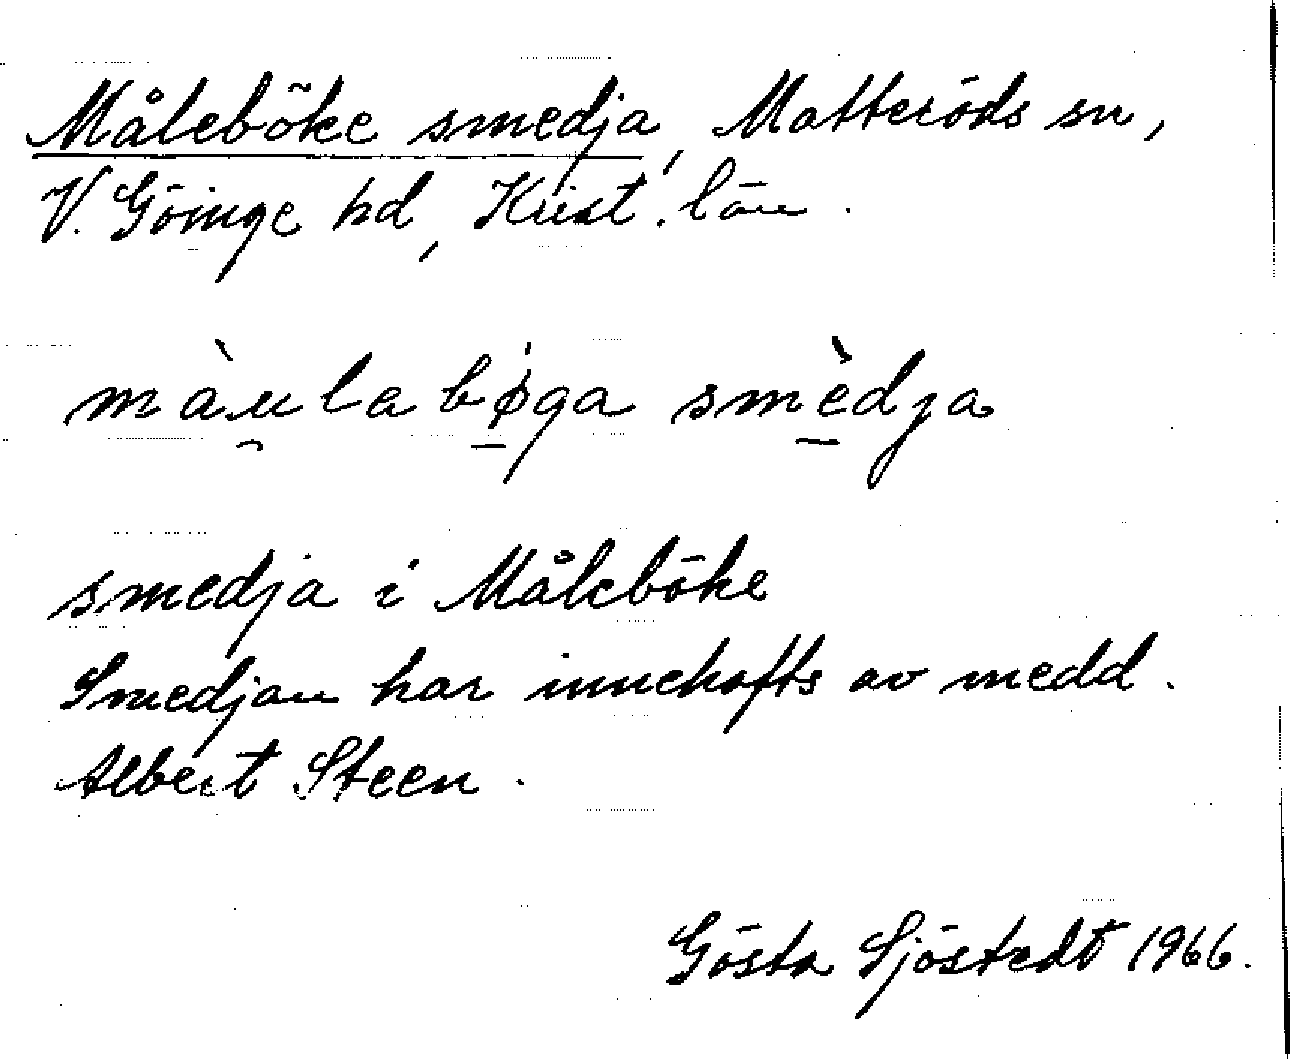 Måleböke smedja, Matteröds sn,
V. Göinge hd, Krist. län.
màu̯la bǿ̠ga smè̠dja
smedja i Måleböke
Smedjan har innehafts av medd.
Albert Steen.
Gösta Sjöstedt 1966.